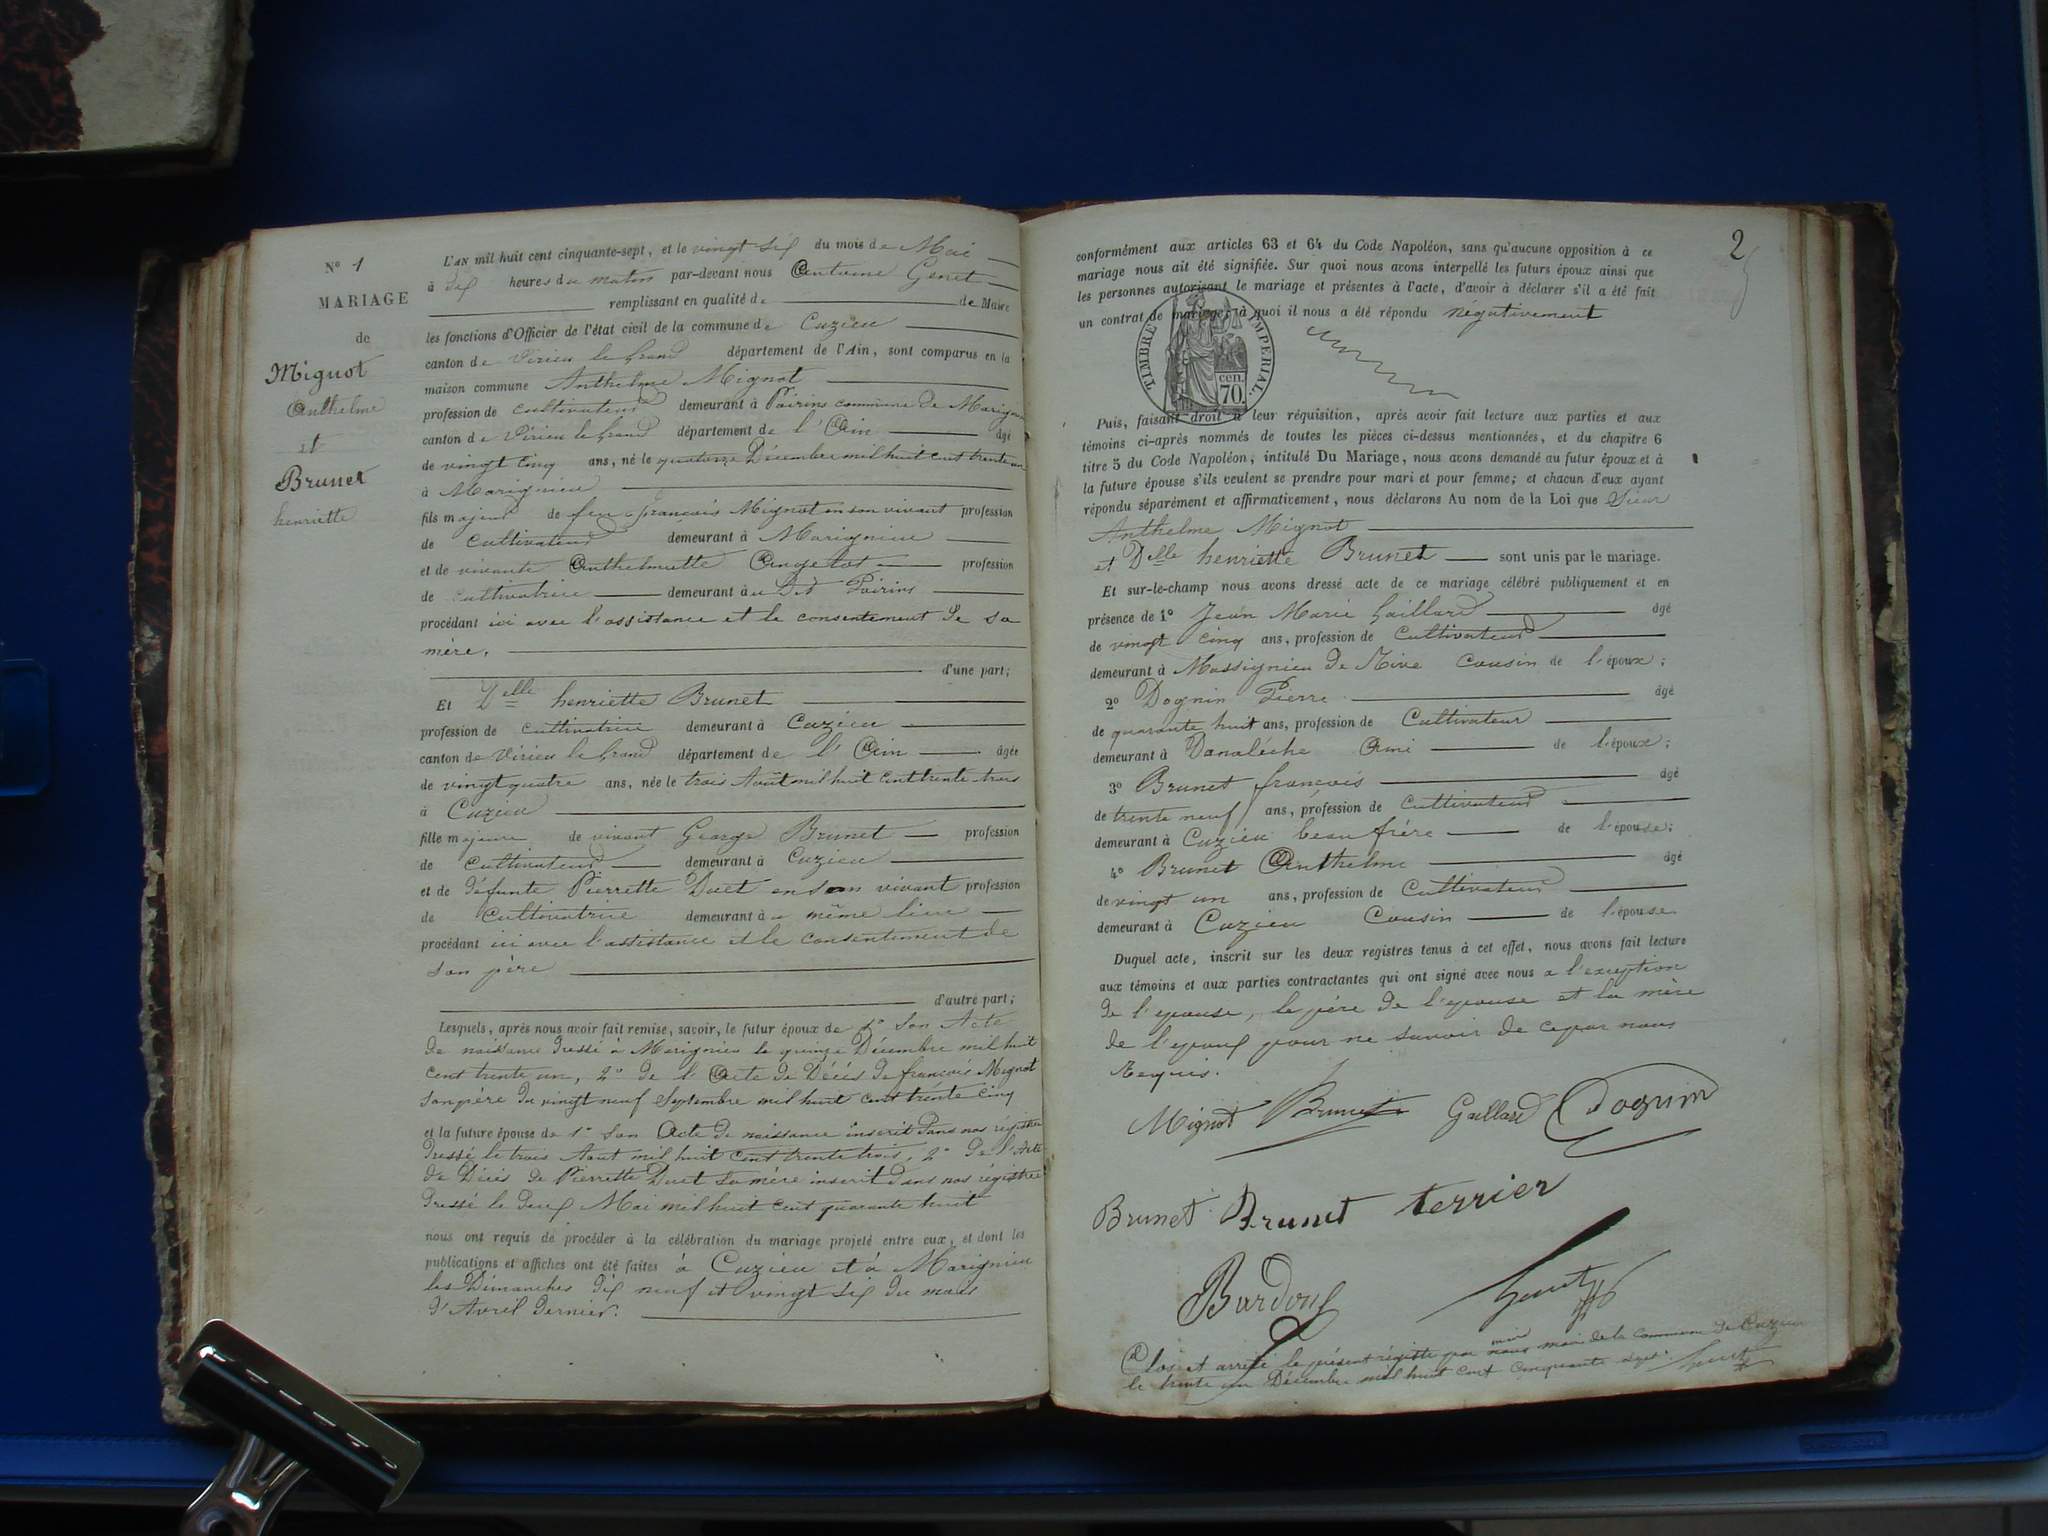 N° 1
MARIAGE
de
Mignot
Anthelme
et
Brunet
henriette
L'AN mil huit cent cinquante-sept, et le vingt six du mois de Mai
à dix heures du matin par-devant nous Antoine Genet
remplissant en qualité de de Maire
les fonctions d'Officier de l'état civil de la commune de Cuzieu
canton de Virieu le Grand département de l'Ain, sont comparus en la
maison commune Anthelme Mignot
profession de cultivateur demeurant à Poirins commune de Marignieu
canton de Virieu le Grand département de l'Ain âgé
de vingt cinq ans, né le quatorze Décembre mil huit cent trente un
à Marignieu
fils majeur de feu françois Mignot en son vivant profession
de Cultivateur demeurant à Marignieu
et de vivante Anthelmette Angelot profession
de cultivatrice demeurant au Dit Poirins
procédant ici avec l'assistance et le consentement de sa
mère.
d'une part;
Et Delle henriette Brunet
profession de cultivatrice demeurant à Cuzieu
canton de Virieu le Grand département de l'Ain âgée
de vingt quatre ans, née le trois Août mil huit cent trente trois
à Cuzieu
fille majeure de vivant George Brunet profession
de Cultivateur demeurant à Cuzieu
et de défunte Pierrette Duet en son vivant profession
de Cultivatrice demeurant à u même lieu
procédant ici avec l'assistance et le consentement de
son père
d'autre part;
Lesquels, après nous avoir fait remise, savoir, le futur époux de 1° Son Acte
de naissance dressé à Marignieu le quinze Décembre mil huit
cent trente un, 2° de l'Acte de Décès de françois Mignot
son père du vingt neuf Septembre mil huit cent trente cinq
et la future épouse de 1° Son Acte de naissance inscrit dans nos régistres
dressé le trois Aout mil huit cent trente trois, 2° de l'Acte
de Décès de Pierrette Duet sa mère inscrit dans nos régistres
dressé le deux Mai mil huit cent quarante huit
nous ont requis de procéder à la célébration du mariage projeté entre eux, et dont les
publications et affiches ont été faites à Cuzieu et à Marignieu
les Dimanches dix neuf et vingt six du mois
d'Avril dernier.
2
conformément aux articles 63 et 64 du Code Napoléon, sans qu'aucune opposition à ce
mariage nous ait été signifiée. Sur quoi nous avons interpellé les futurs époux ainsi que
les personnes autorisant le mariage et présentes à l'acte, d'avoir à déclarer s'il a été fait
un contrat de mariage; à quoi il nous a été répondu négativement
TIMBRE IMPERIAL.
cen.
70.
Puis, faisant droit à leur réquisition, après avoir fait lecture aux parties et aux
témoins ci-après nommés de toutes les pièces ci-dessus mentionnées, et du chapitre 6
titre 5 du Code Napoléon, intitulé Du Mariage, nous avons demandé au futur époux et à
la future épouse s'ils veulent se prendre pour mari et pour femme; et chacun d'eux ayant
répondu séparément et affirmativement, nous déclarons Au nom de la Loi que Sieur
Anthelme Mignot
et Delle henriette Brunet sont unis par le mariage.
Et sur-le-champ nous avons dressé acte de ce mariage célébré publiquement et en
présence de 1° Jean Marie Gaillard âgé
de vingt cinq ans, profession de Cultivateur
demeurant à Massignieu de Rive Cousin de l'époux;
2° Dognin Pierre âgé
de quarante huit ans, profession de Cultivateur
demeurant à Danaléche Ami de l'époux;
3° Brunet françois âgé
de trente neuf ans, profession de Cultivateur
demeurant à Cuzieu beau frère de l'épouse;
4° Brunet Anthelme âgé
de vingt un ans, profession de Cultivateur
demeurant à Cuzieu Cousin de l'épouse
Duquel acte, inscrit sur les deux registres tenus à cet effet, nous avons fait lecture
aux témoins et aux parties contractantes qui ont signé avec nous a l'exception
de l'épouse, le père de l'épouse et la mère
de l'époux pour ne savoir de ce par nous
Requis.
Mignot Brunet Gaillard Dognin
Brunet Brunet terrier
Bardoux Genet
Clos et arrêté le présent régistre par nous maire de la Commune de Cuzieu
le trente un Décembre mil huit cent cinquante sept. Genet